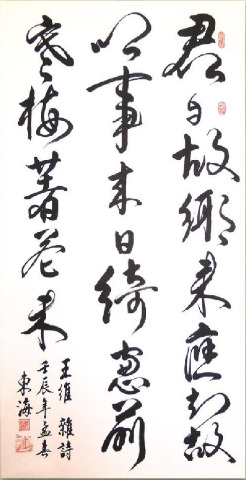 君自故鄉來應知故
鄉事來日綺窗前
寒梅著花未
王維 雜詩
壬辰年孟春
東海